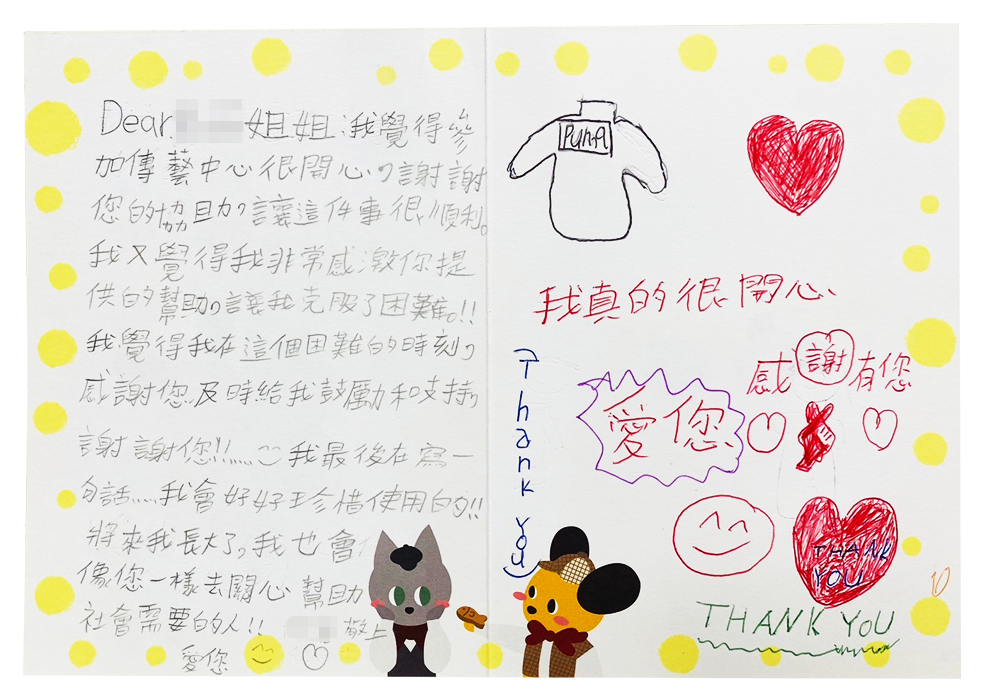 Dear 姐姐:我覺得參
加傳藝中心很開心,謝謝
您的協助,讓這件事很順利。
我又覺得我非常感激你提
供的幫助,讓我克服了困難。!!
我覺得我在這個困難的時刻,
感謝您及時給我鼓勵和支持,
謝謝您!!.....我最後在寫一
句話.....我會好好珍惜使用的!!
將來我長大了,我也會
像您一樣去關心幫助
社會需要的人!! 敬上
愛您
我真的很開心、
Thank you
愛您
感謝有您
THANK
YOU
THANK YOU
10